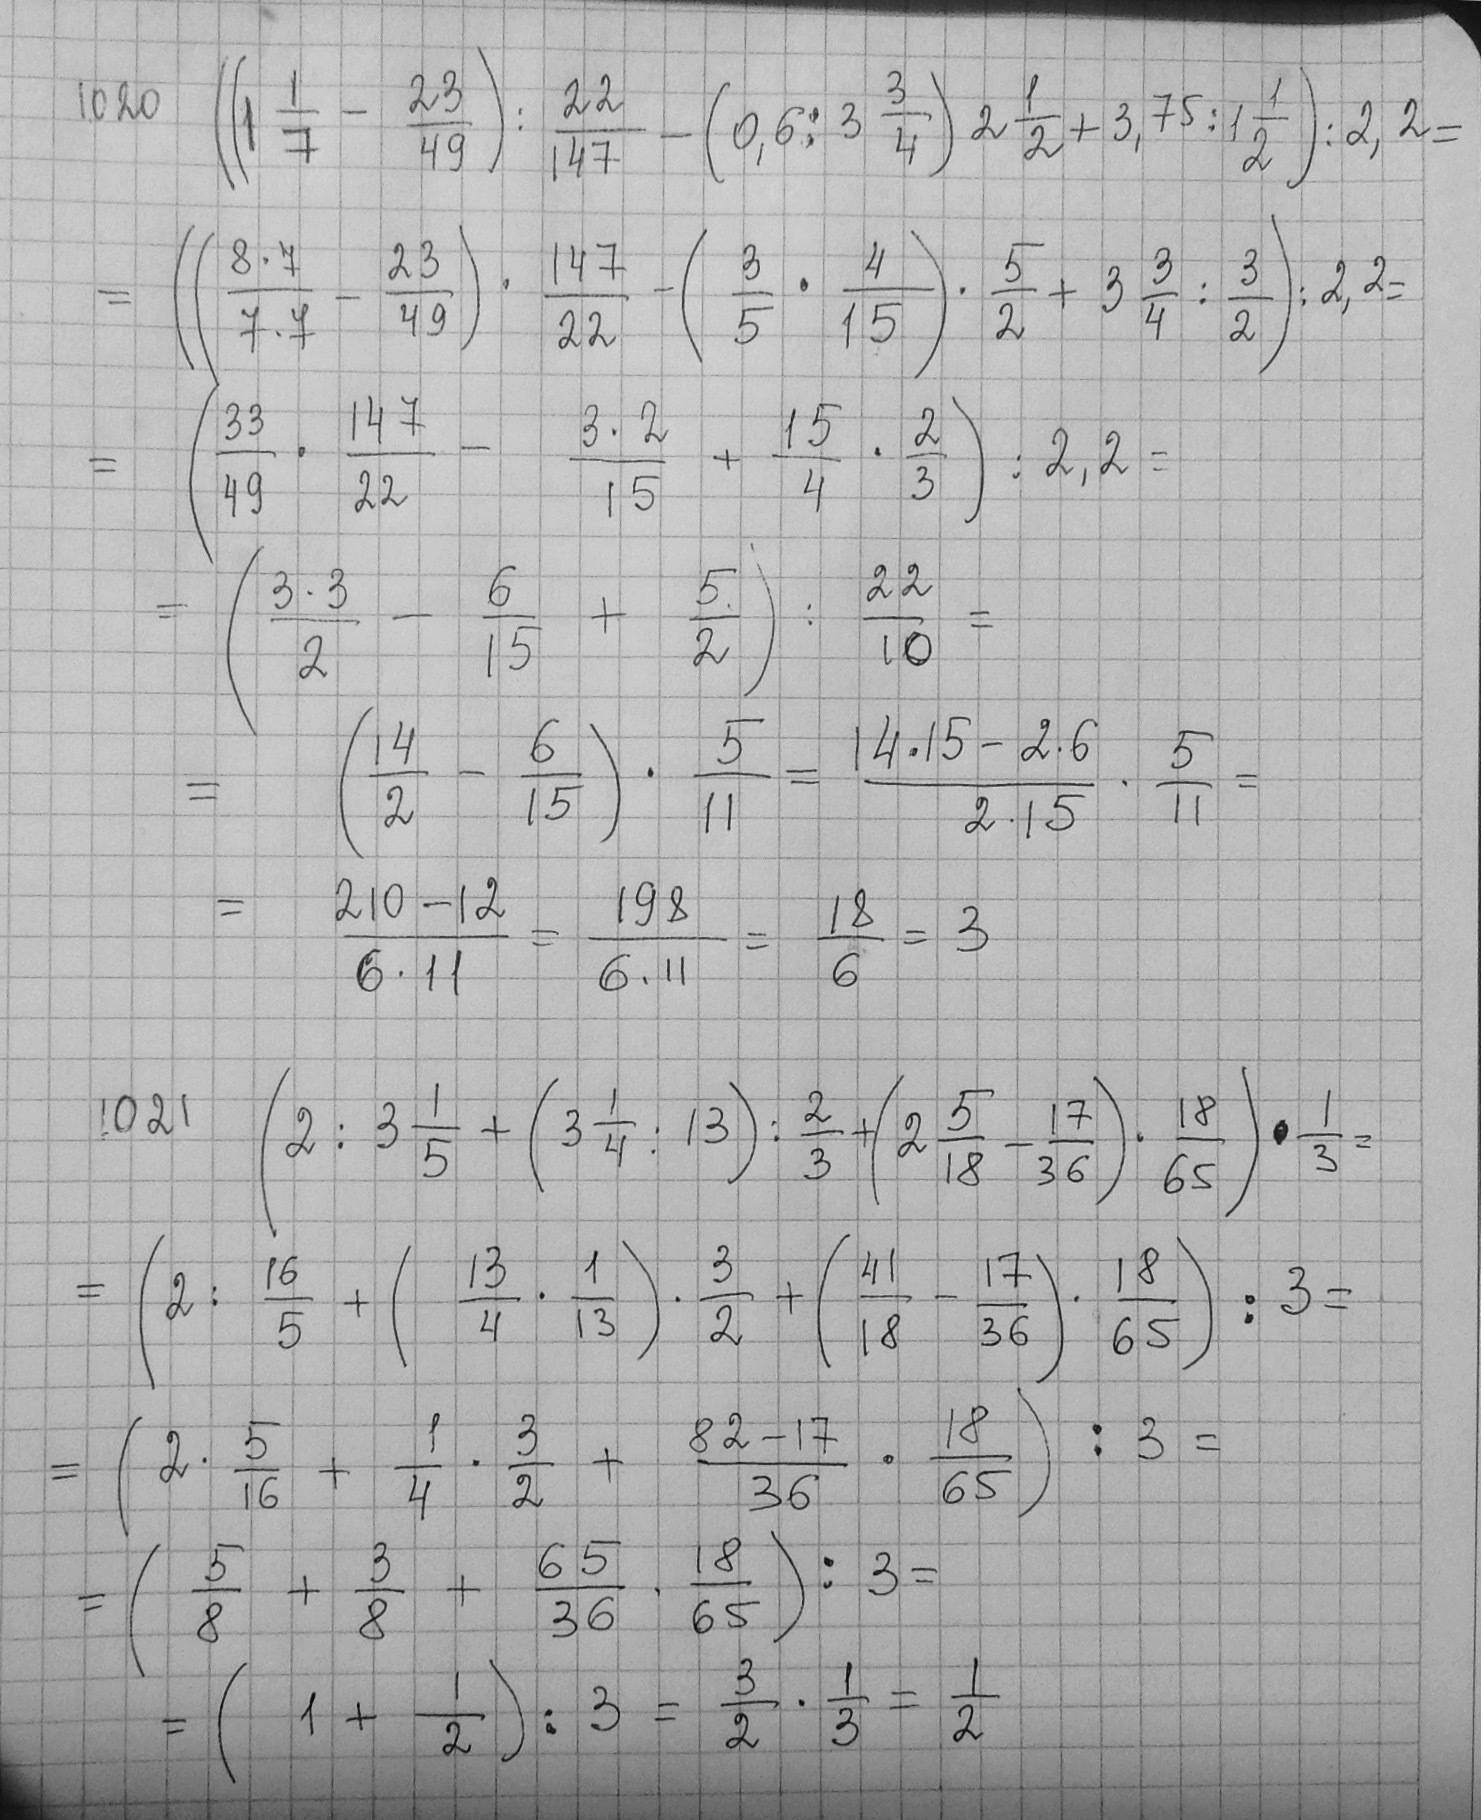 1020 ((1 1/7 - 23/49) : 22/147 - (0,6 : 3 3/4) 2 1/2 + 3,75 : 1 1/2) : 2,2 =
= ((8·7/7·7 - 23/49) · 147/22 - (3/5 · 4/15) · 5/2 + 3 3/4 : 3/2) : 2,2 =
= (33/49 · 147/22 - 3·2/15 + 15/4 · 2/3) : 2,2 =
= (3·3/2 - 6/15 + 5/2) : 22/10 =
= (14/2 - 6/15) · 5/11 = 14·15 - 2·6/2·15 · 5/11 =
= 210 - 12/6·11 = 198/6·11 = 18/6 = 3
1021 (2 : 3 1/5 + (3 1/4 : 13) : 2/3 + (2 5/18 - 17/36) · 18/65) · 1/3 =
= (2 : 16/5 + (13/4 · 1/13) · 3/2 + (41/18 - 17/36) · 18/65) : 3 =
= (2 · 5/16 + 1/4 · 3/2 + 82 - 17/36 · 18/65) : 3 =
= (5/8 + 3/8 + 65/36 · 18/65) : 3 =
= (1 + 1/2) : 3 = 3/2 · 1/3 = 1/2